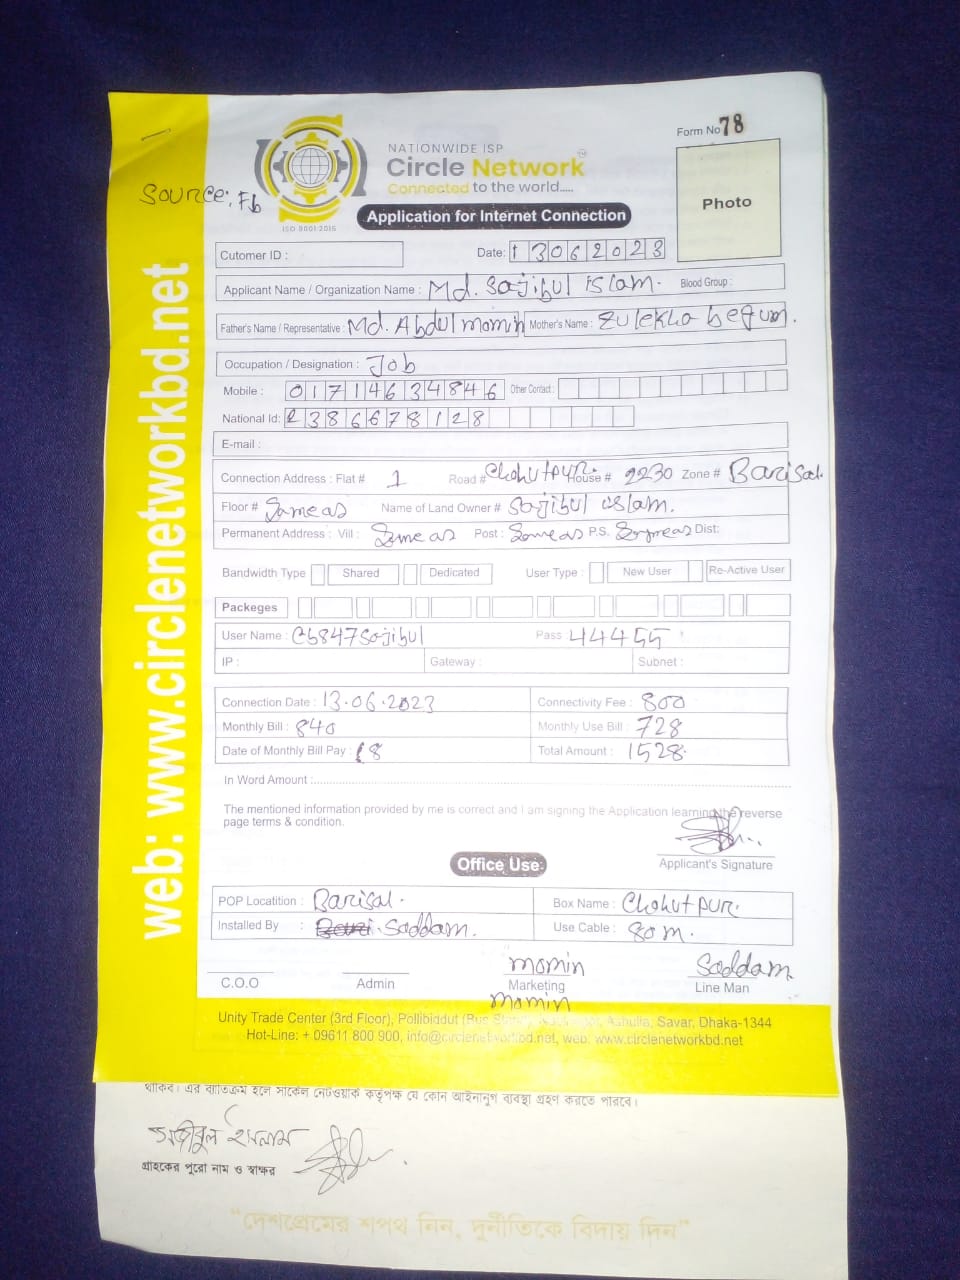 NATIONWIDE ISP
Circle Network™
Connected to the world.....
ISO 9001:2015
Source: Fb
Form No 78
Photo
Application for Internet Connection
Cutomer ID :
Date: 13062023
Applicant Name / Organization Name : Md. Sajibul islam. Blood Group :
Father's Name / Representative : Md. Abdul momin Mother's Name : Zulekha begum.
Occupation / Designation : Job
Mobile : 01714634846 Other Contact :
National Id: 2386678128
E-mail :
Connection Address : Flat # 1 Road # Chohutpur. House # 2230 Zone # Barisal.
Floor # Same as Name of Land Owner # Sajibul islam.
Permanent Address : Vill : Same as Post : Same as P.S. Same as Dist:
Bandwidth Type Shared Dedicated User Type : New User Re-Active User
Packeges
User Name : Cb847Sajibul Pass 44455
IP : Gateway : Subnet :
Connection Date : 13.06.2023 Connectivity Fee : 800
Monthly Bill : 840 Monthly Use Bill : 728
Date of Monthly Bill Pay : 18 Total Amount : 1528
In Word Amount :
The mentioned information provided by me is correct and I am signing the Application learning the reverse
page terms & condition.
Applicant's Signature
Office Use:
POP Locatition : Barisal. Box Name : Chohutpur.
Installed By : Saddam. Use Cable : 80m.
momin Saddam
C.O.O Admin Marketing Line Man
momin
Unity Trade Center (3rd Floor), Pollibiddut (Bus Ashulia, Savar, Dhaka-1344
Hot-Line: + 09611 800 900, info@circlenetworkbd.net, web: www.circlenetworkbd.net
web: www.circlenetworkbd.net
থাকিব। এর ব্যতিক্রম হলে সার্কেল নেটওয়ার্ক কর্তৃপক্ষ যে কোন আইনানুগ ব্যবস্থা গ্রহণ করতে পারবে।
সজীবুল ইসলাম
গ্রাহকের পুরো নাম ও স্বাক্ষর
“দেশপ্রেমের শপথ নিন, দুর্নীতিকে বিদায় দিন”